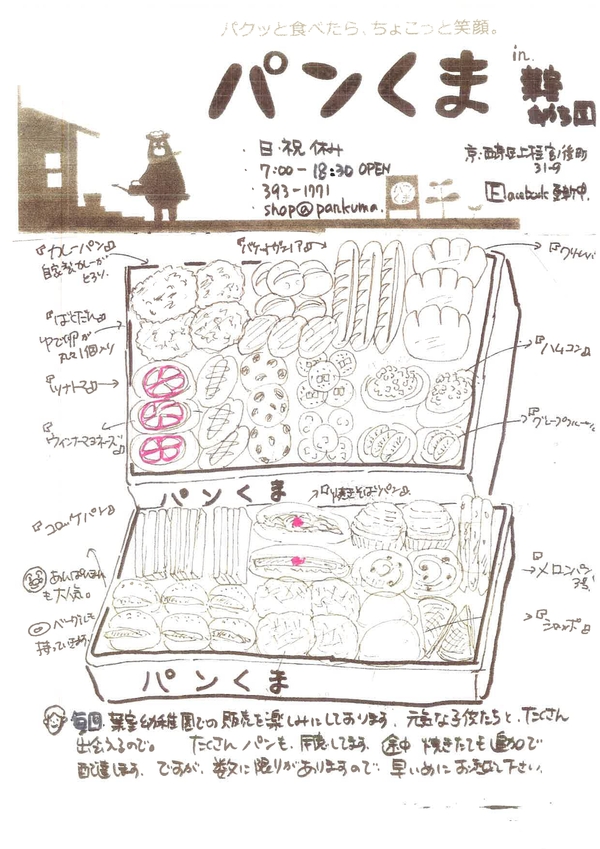 パクッと食べたら、ちょこっと笑顔。
パンくま in.
・日・祝 休み
・7:00-18:30 OPEN
・393-1771
・shop@pankuma.
31-9
Facebook
『カレーパン』
自家製カレーが
とろり。
『ばくだん』
ゆで卵が
丸々1個入り
『ツナトマト』
『ウインナーマヨネーズ』
『ハムコーン』
『グレープフルーツ』
パンくま
『焼きそばパン』
『コロッケパン』
あんぱんまん
も大人気。
ベーグルも
持っていきます。
『メロンパン
3号』
『シャッポ』
パンくま
毎回、葉室幼稚園での販売を楽しみにしております。元気な子供たちと、たくさん
出会えるので。 たくさん パンも、用意してます。途中 焼きたても追加で
配達します。ですが、数に限りがありますので、早いめに お越し下さい。